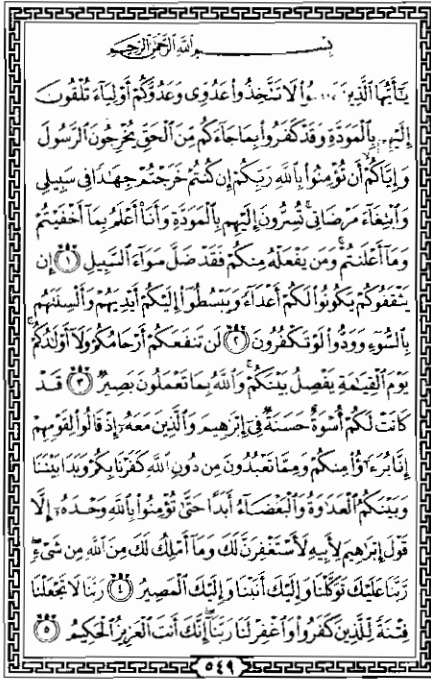 بِسْمِ ٱللَّهِ ٱلرَّحْمَٰنِ ٱلرَّحِيمِ
يَٰٓأَيُّهَا ٱلَّذِينَ ءَامَنُوا۟ لَا تَتَّخِذُوا۟ عَدُوِّى وَعَدُوَّكُمْ أَوْلِيَآءَ تُلْقُونَ
إِلَيْهِم بِٱلْمَوَدَّةِ وَقَدْ كَفَرُوا۟ بِمَا جَآءَكُم مِّنَ ٱلْحَقِّ يُخْرِجُونَ ٱلرَّسُولَ
وَإِيَّاكُمْ أَن تُؤْمِنُوا۟ بِٱللَّهِ رَبِّكُمْ إِن كُنتُمْ خَرَجْتُمْ جِهَٰدًا فِى سَبِيلِى
وَٱبْتِغَآءَ مَرْضَاتِى تُسِرُّونَ إِلَيْهِم بِٱلْمَوَدَّةِ وَأَنَا۠ أَعْلَمُ بِمَآ أَخْفَيْتُمْ
وَمَآ أَعْلَنتُمْ وَمَن يَفْعَلْهُ مِنكُمْ فَقَدْ ضَلَّ سَوَآءَ ٱلسَّبِيلِ ١ إِن
يَثْقَفُوكُمْ يَكُونُوا۟ لَكُمْ أَعْدَآءً وَيَبْسُطُوٓا۟ إِلَيْكُمْ أَيْدِيَهُمْ وَأَلْسِنَتَهُم
بِٱلسُّوٓءِ وَوَدُّوا۟ لَوْ تَكْفُرُونَ ٢ لَن تَنفَعَكُمْ أَرْحَامُكُمْ وَلَآ أَوْلَٰدُكُمْ
يَوْمَ ٱلْقِيَٰمَةِ يَفْصِلُ بَيْنَكُمْ وَٱللَّهُ بِمَا تَعْمَلُونَ بَصِيرٌ ٣ قَدْ
كَانَتْ لَكُمْ أُسْوَةٌ حَسَنَةٌ فِىٓ إِبْرَٰهِيمَ وَٱلَّذِينَ مَعَهُۥٓ إِذْ قَالُوا۟ لِقَوْمِهِمْ
إِنَّا بُرَءَٰٓؤُا۟ مِنكُمْ وَمِمَّا تَعْبُدُونَ مِن دُونِ ٱللَّهِ كَفَرْنَا بِكُمْ وَبَدَا بَيْنَنَا
وَبَيْنَكُمُ ٱلْعَدَٰوَةُ وَٱلْبَغْضَآءُ أَبَدًا حَتَّىٰ تُؤْمِنُوا۟ بِٱللَّهِ وَحْدَهُۥٓ إِلَّا
قَوْلَ إِبْرَٰهِيمَ لِأَبِيهِ لَأَسْتَغْفِرَنَّ لَكَ وَمَآ أَمْلِكُ لَكَ مِنَ ٱللَّهِ مِن شَىْءٍ
رَّبَّنَا عَلَيْكَ تَوَكَّلْنَا وَإِلَيْكَ أَنَبْنَا وَإِلَيْكَ ٱلْمَصِيرُ ٤ رَبَّنَا لَا تَجْعَلْنَا
فِتْنَةً لِّلَّذِينَ كَفَرُوا۟ وَٱغْفِرْ لَنَا رَبَّنَآ إِنَّكَ أَنتَ ٱلْعَزِيزُ ٱلْحَكِيمُ ٥
٥٤٩